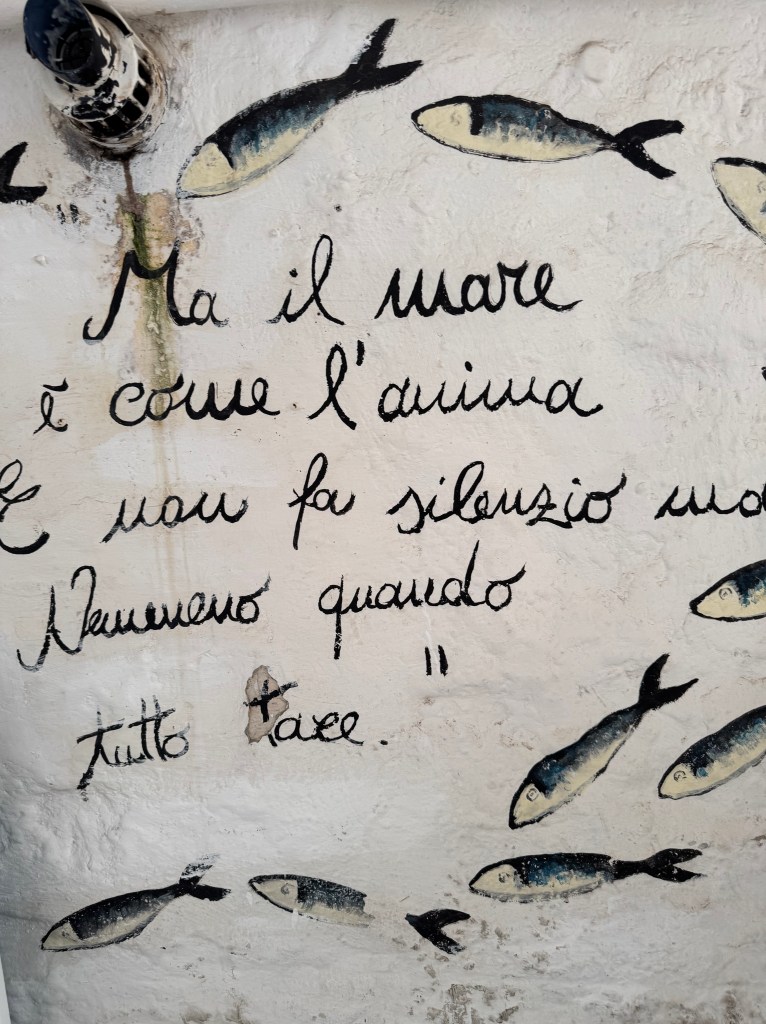 "
Ma il mare
è come l'anima
E non fa silenzio ma
Nemmeno quando
"
tutto tace.